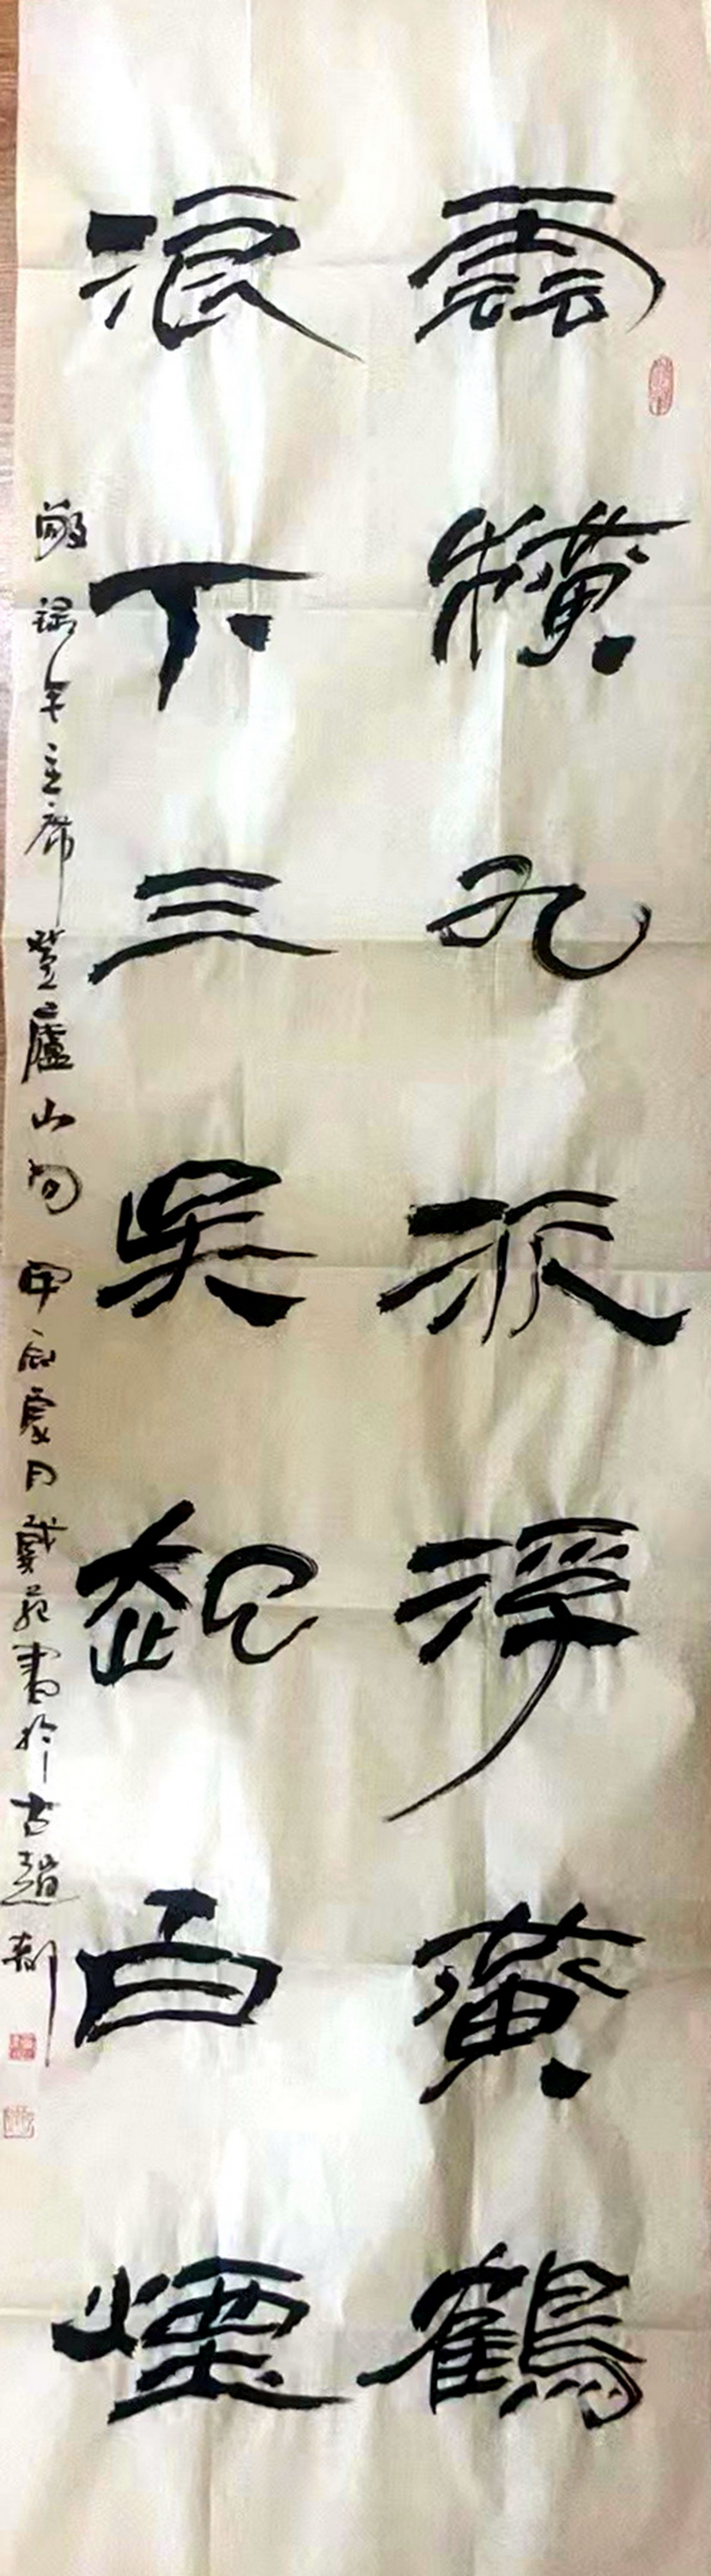 雲橫九派浮黃鶴
浪下三吳起白煙
敬錄毛主席登廬山句 甲辰夏月戴苑書於古趙都